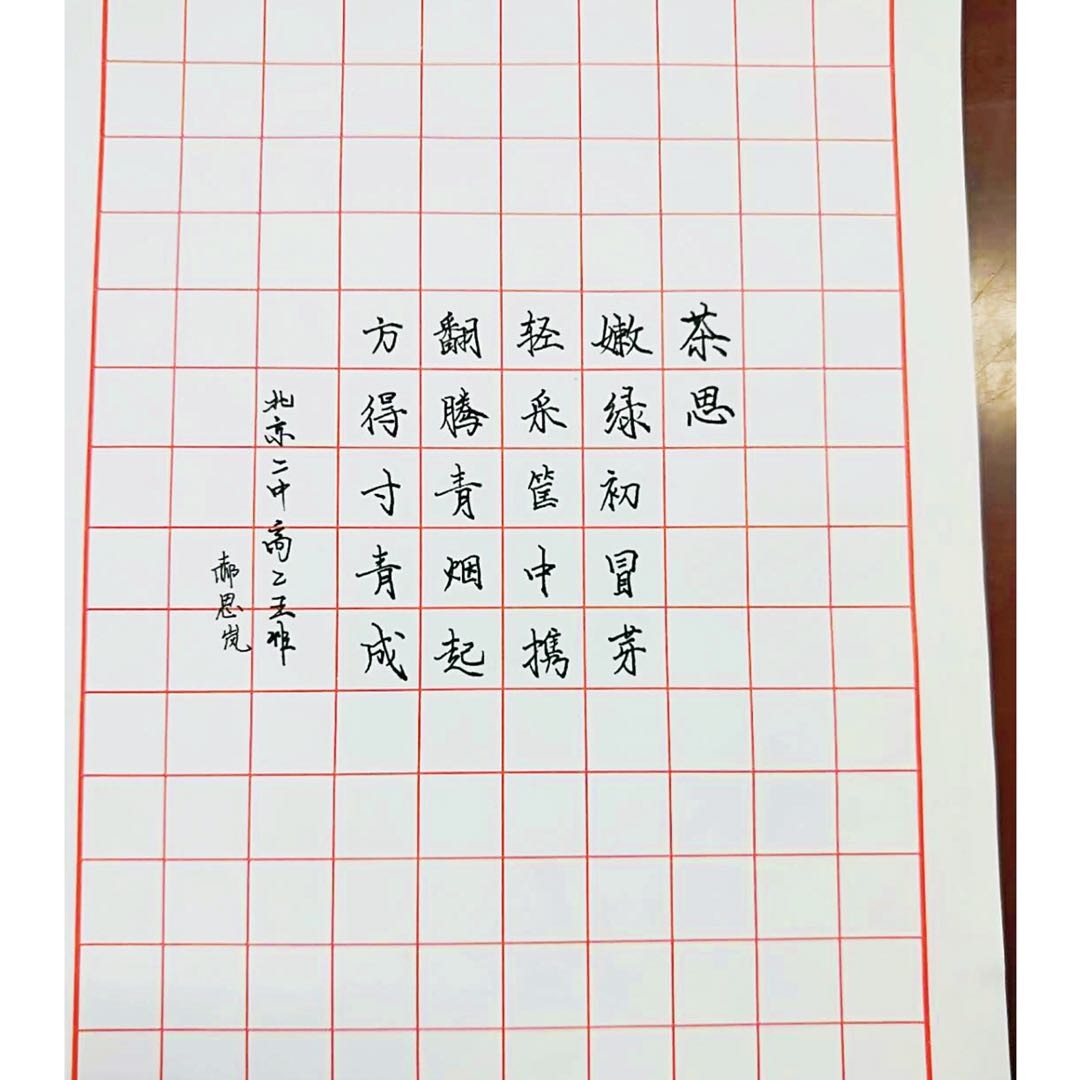 茶思
嫩绿初冒芽
轻采筐中携
翻腾青烟起
方得寸青成
北京二中高二五班
郝思岚